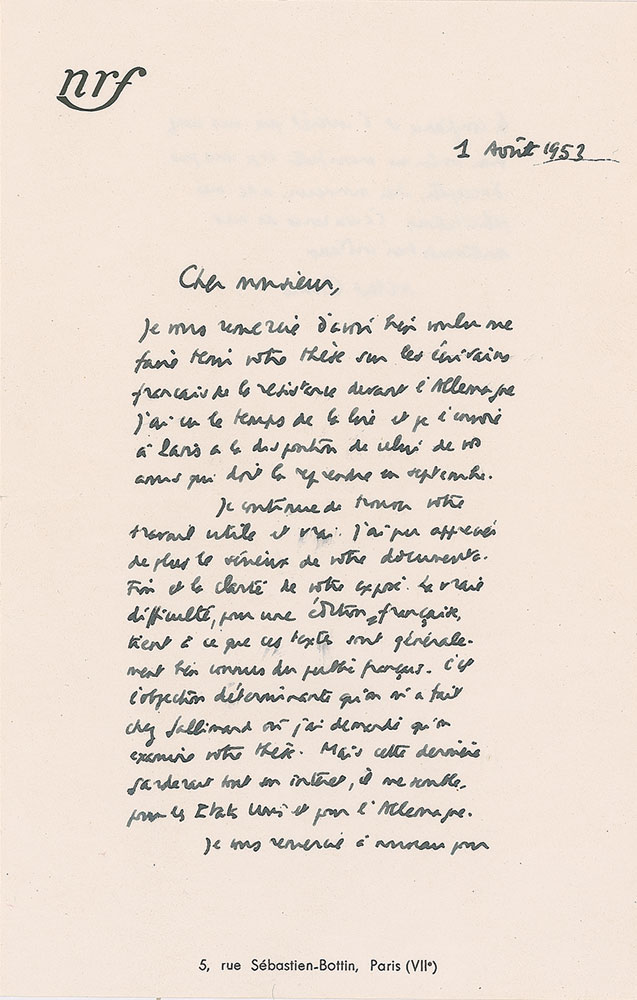 nrf
1 Août 1953
Cher monsieur,
Je vous remercie d'avoir bien voulu me
faire tenir votre thèse sur les écrivains
français de la résistance devant l'Allemagne
J'ai eu le temps de la lire et je l'envoie
à Paris a la disposition de celui de vos
amis qui doit la reprendre en septembre.
Je continue de trouver votre
travail utile et vrai. J'ai pu apprécier
de plus le sérieux de votre documenta-
tion et la clarté de votre exposé. La vraie
difficulté, pour une édition française,
tient à ce que ces textes sont générale-
ment bien connus du public français. C'est
l'objection déterminante qu'on m'a fait
chez Gallimard où j'ai demandé qu'on
examine votre thèse. Mais cette dernière
garderait tout son intérêt, il me semble,
pour les Etats Unis et pour l'Allemagne.
Je vous remercie à nouveau pour
5, rue Sébastien-Bottin, Paris (VIIᵉ)